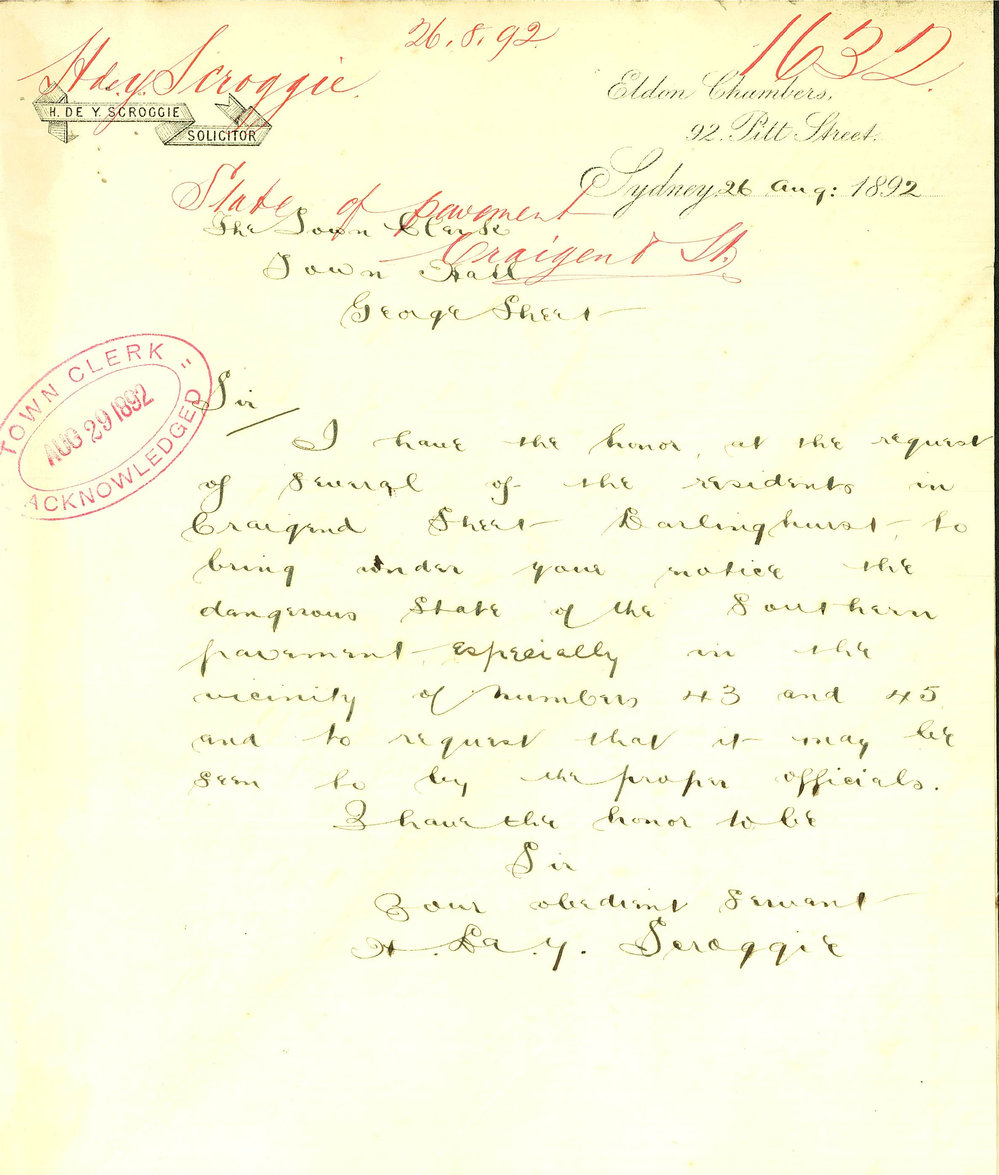 26.8.92
1632
H de Y. Scroggie
H. DE Y. SCROGGIE
SOLICITOR
Eldon Chambers,
92. Pitt Street.
Sydney, 26 Aug: 1892
State of pavement
Craigend St.
The Town Clerk
Town Hall
George Street
TOWN CLERK
AUG 29 1892
ACKNOWLEDGED
Sir
I have the honor, at the request
of several of the residents in
Craigend Street Darlinghurst, to
bring under your notice the
dangerous state of the Southern
pavement especially in the
vicinity of numbers 43 and 45
and to request that it may be
seen to by the proper officials.
I have the honor to be
Sir
Your obedient servant
H. De. Y. Scroggie